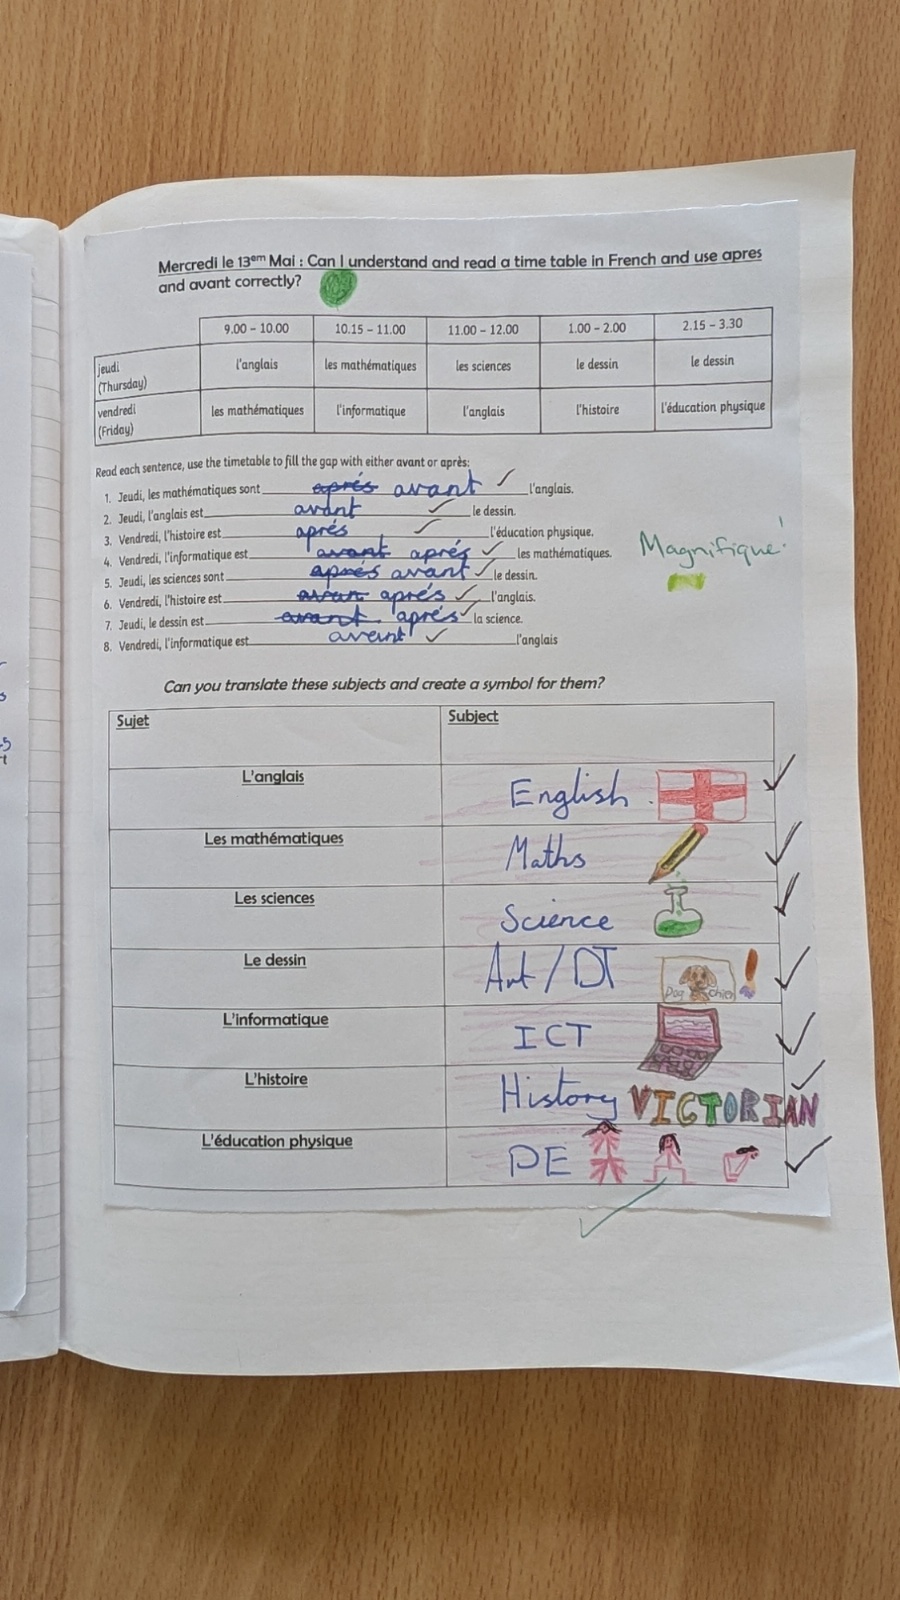 Mercredi le 13em Mai : Can I understand and read a time table in French and use apres
and avant correctly?
9.00 – 10.00 10.15 – 11.00 11.00 – 12.00 1.00 – 2.00 2.15 – 3.30
jeudi (Thursday) l'anglais les mathématiques les sciences le dessin le dessin
vendredi (Friday) les mathématiques l'informatique l'anglais l'histoire l'éducation physique
Read each sentence, use the timetable to fill the gap with either avant or après:
1. Jeudi, les mathématiques sont aprés avant l'anglais.
2. Jeudi, l'anglais est avant le dessin.
3. Vendredi, l'histoire est aprés l'éducation physique.
4. Vendredi, l'informatique est avant aprés les mathématiques.
Magnifique!
5. Jeudi, les sciences sont aprés avant le dessin.
6. Vendredi, l'histoire est avan aprés l'anglais.
7. Jeudi, le dessin est avant aprés la science.
8. Vendredi, l'informatique est avant l'anglais
Can you translate these subjects and create a symbol for them?
Sujet Subject
L'anglais English
Les mathématiques Maths
Les sciences Science
Le dessin Art / DT
Dog chien
L'informatique ICT
L'histoire History VICTORIAN
L'éducation physique PE